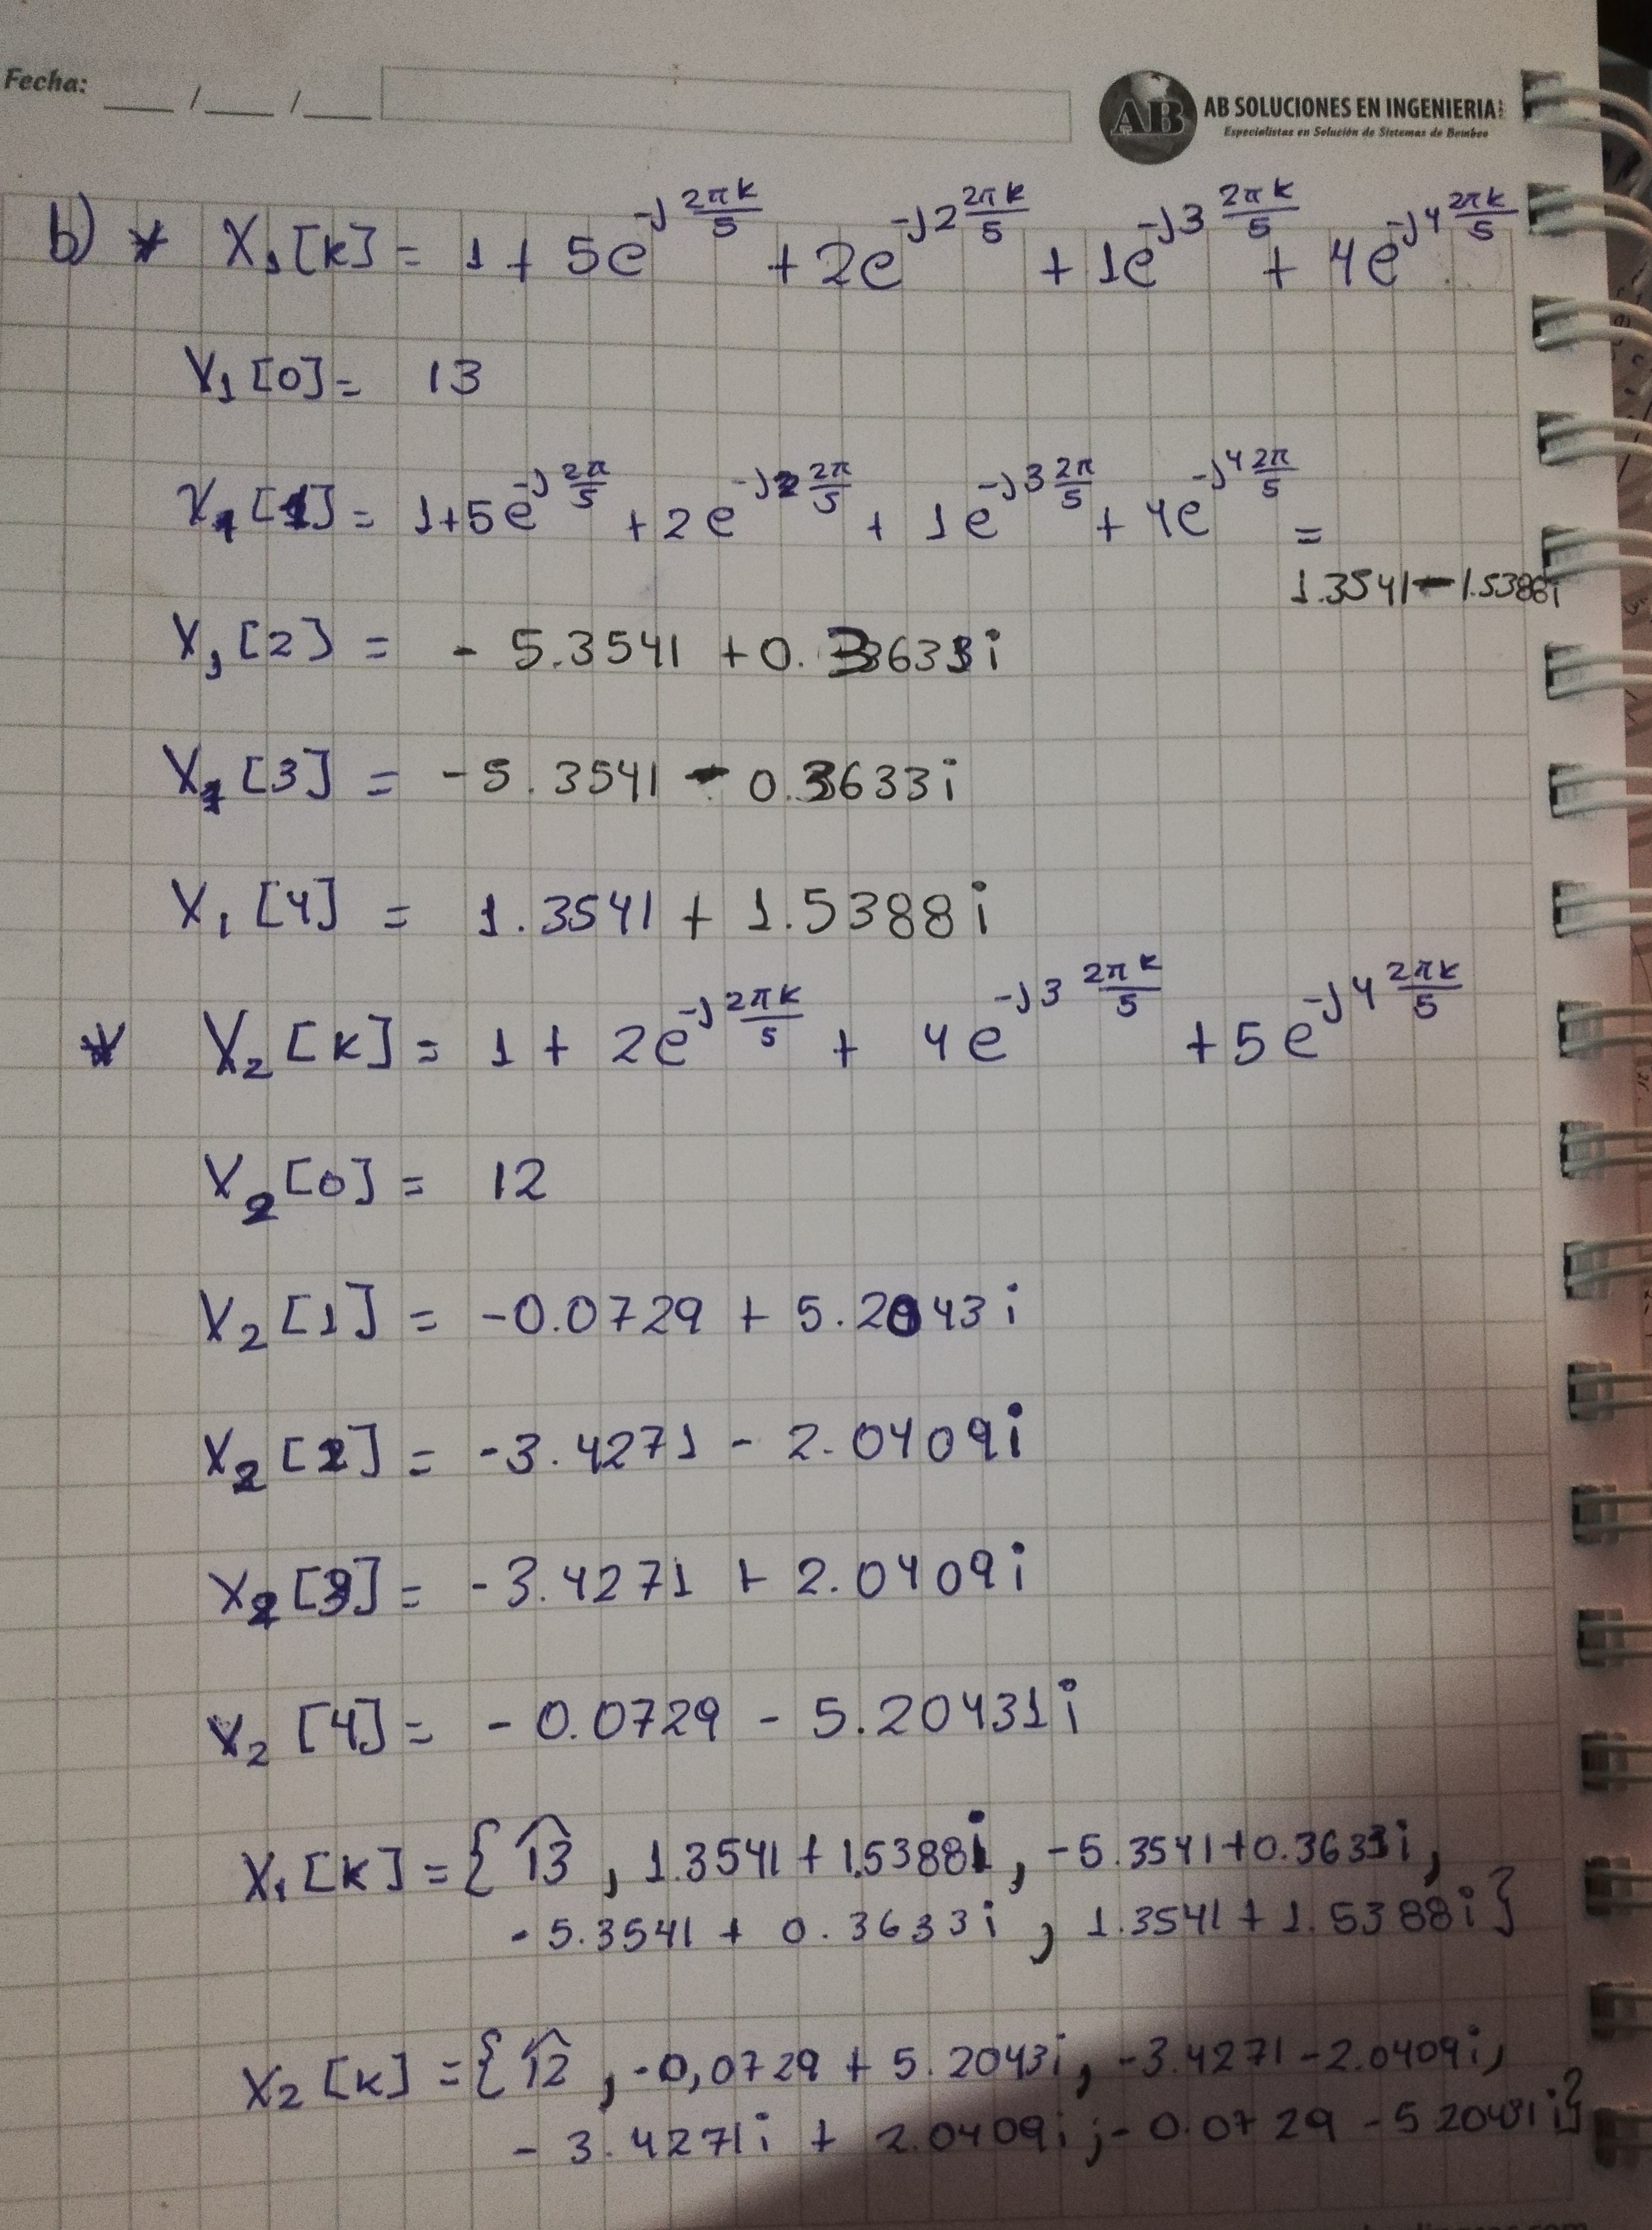 Fecha: ___ / ___ / ___
AB AB SOLUCIONES EN INGENIERIA
Especialistas en Solución de Sistemas de Bombeo
b) * X₁[k] = 1 + 5e^{-j 2πk/5} + 2e^{-j2 2πk/5} + 1e^{-j3 2πk/5} + 4e^{-j4 2πk/5}
X₁[0] = 13
X₁[1] = 1+5e^{-j 2π/5} + 2e^{-j2 2π/5} + 1e^{-j3 2π/5} + 4e^{-j4 2π/5} =
1.3541 - 1.5388i
X₁[2] = - 5.3541 + 0.3633i
X₁[3] = -5.3541 - 0.3633i
X₁[4] = 1.3541 + 1.5388i
* X₂[k] = 1 + 2e^{-j 2πk/5} + 4e^{-j3 2πk/5} + 5e^{-j4 2πk/5}
X₂[0] = 12
X₂[1] = -0.0729 + 5.2043i
X₂[2] = -3.4271 - 2.0409i
X₂[3] = -3.4271 + 2.0409i
X₂[4] = - 0.0729 - 5.20431i
X₁[k] = {13, 1.3541 + 1.5388i, -5.3541+0.3633i,
-5.3541 + 0.3633i, 1.3541 + 1.5388i}
X₂[k] = {12, -0,0729 + 5.2043i, -3.4271 - 2.0409i,
- 3.4271i + 2.0409i; -0.0729 - 5.20431i}